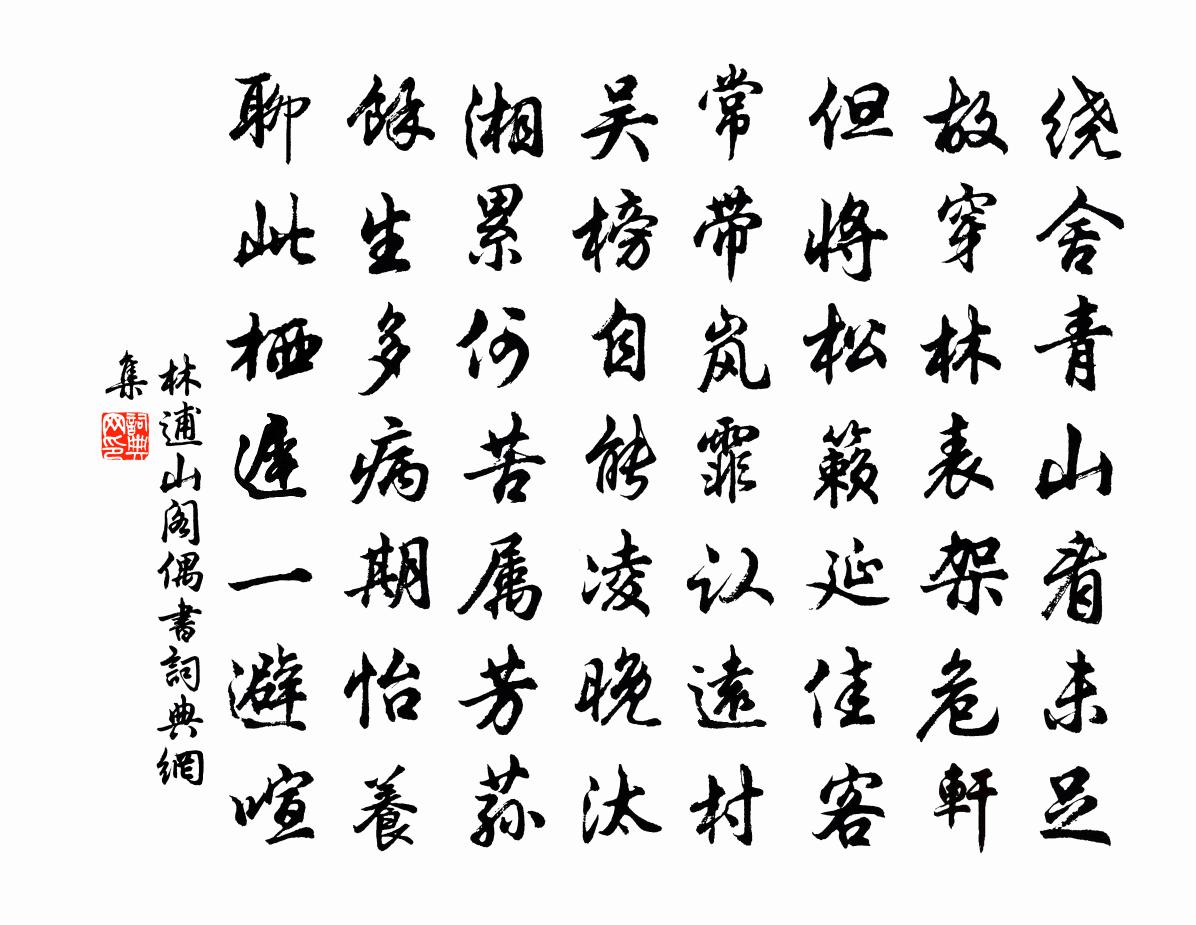 绕舍青山看未足
故穿林表架危軒
但将松籟延佳客
常带岚霏认遠村
吴榜自能凌晚汰
湘累何苦属芳荪
餘生多病期怡養
聊此栖遲一避喧
林逋山阁偶書詞典網
集
詞典
网印